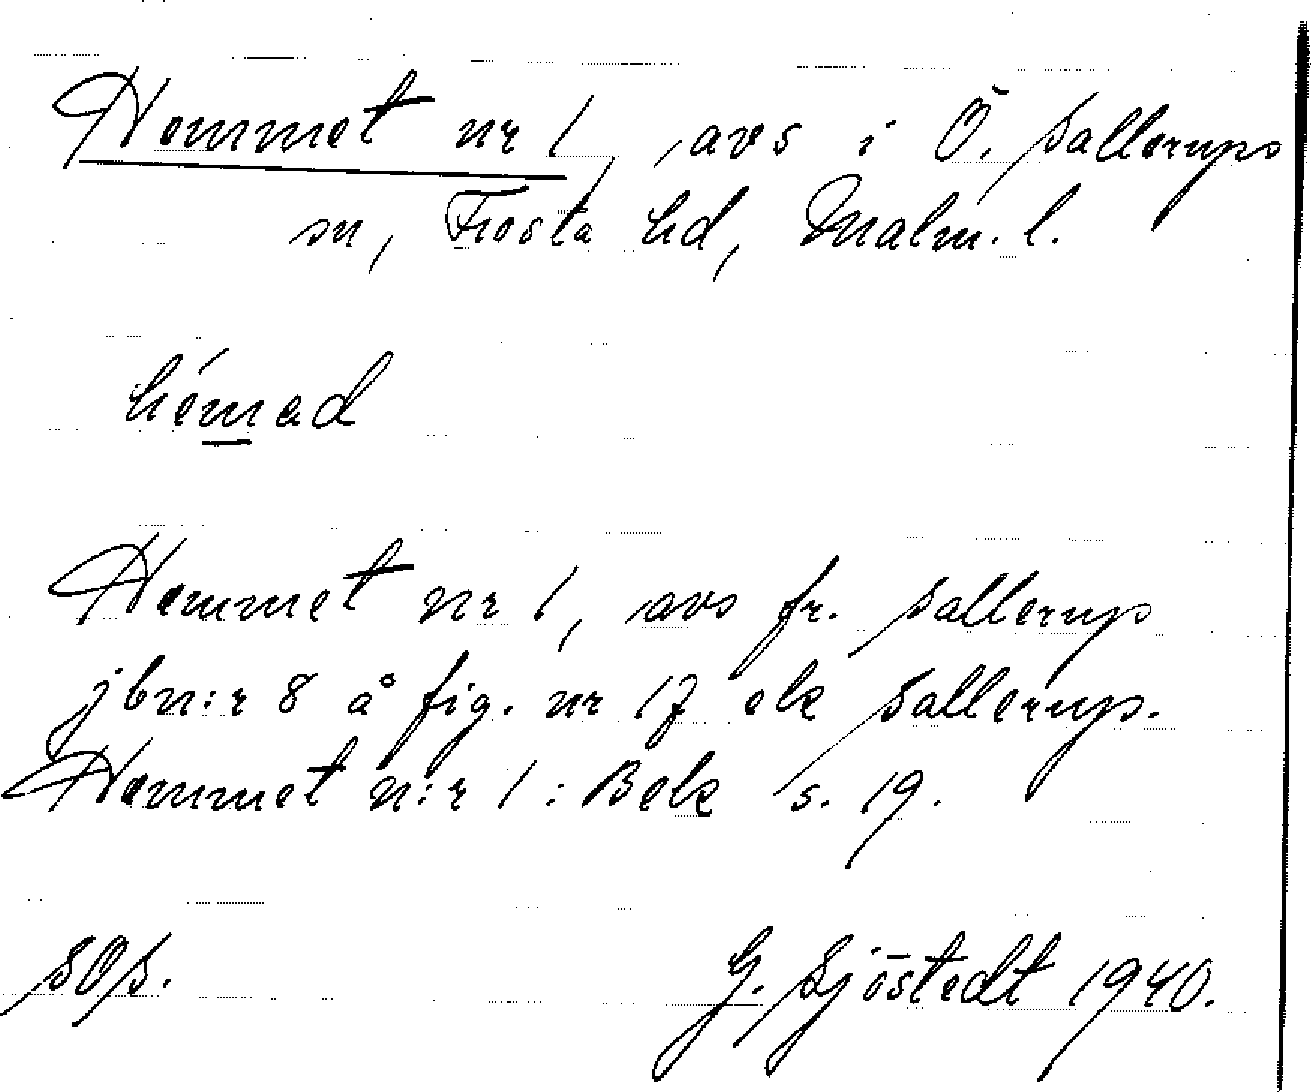 Hemmet nr 1, avs i Ö. Sallerups
sn, Frosta hd, Malm. l.
hémad
Hemmet nr 1, avs fr. Sallerup
jbn:r 8 å fig. nr 17 ek Sallerup.
Hemmet n:r 1: Bek s. 19.
SOS.
G. Sjöstedt 1940.